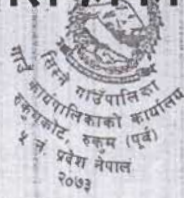 सिस्ने गाउँपालिका
गाउँ कार्यपालिकाको कार्यालय
रुकुमकोट, रुकुम (पूर्व)
५ नं. प्रदेश नेपाल
२०७३